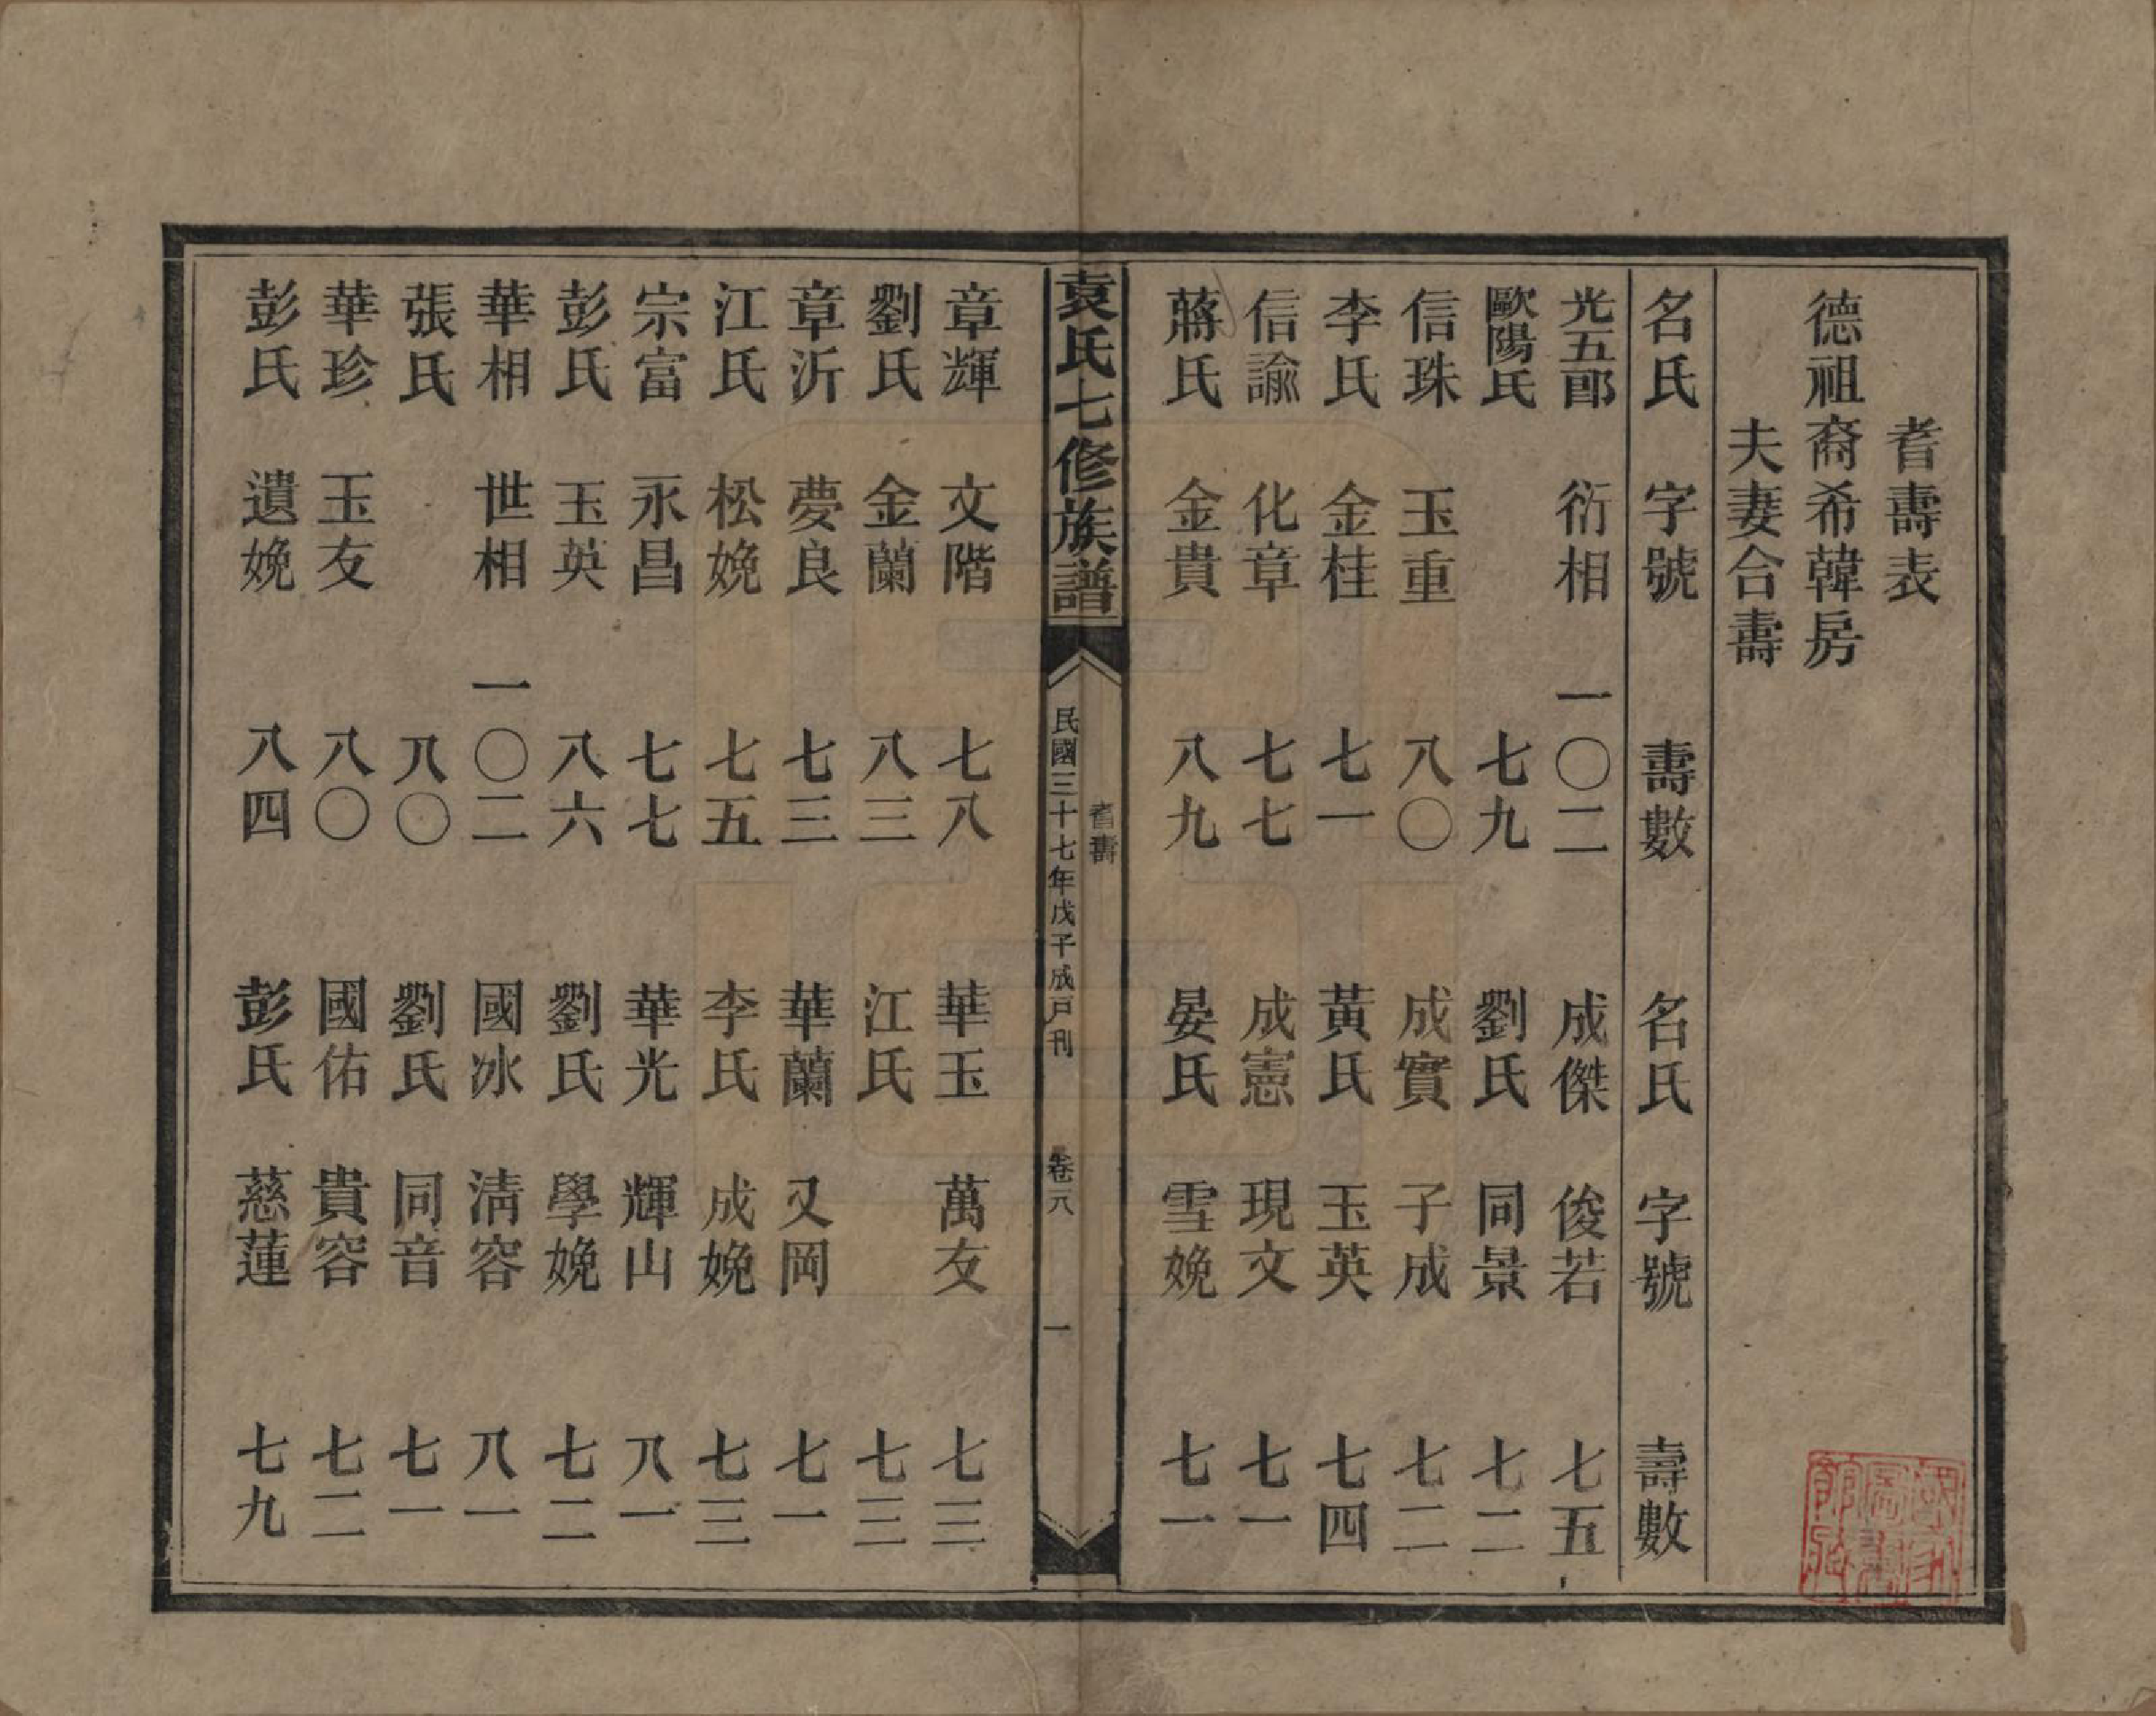 耆壽表
德祖裔希韓房
夫妻合壽
名氏 字號 壽數 名氏 字號 壽數
光五郎 衍相 一〇二 成傑 俊若 七五
歐陽氏 七九 劉氏 同景 七二
信珠 玉重 八〇 成實 子成 七二
李氏 金桂 七一 黃氏 玉英 七四
信諭 化章 七七 成憲 現文 七一
蔣氏 金貴 八九 晏氏 雪娩 七一
袁氏七修族譜
耆壽
民國三十七年戊子成戸刊 卷之八 一
章輝 文階 七八 華玉 萬友 七三
劉氏 金蘭 八三 江氏 七三
章沂 夢良 七三 華蘭 又岡 七一
江氏 松娩 七五 李氏 成娩 七三
宗富 永昌 七七 華光 輝山 八一
彭氏 玉英 八六 劉氏 學娩 七二
華相 世相 一〇二 國冰 淸容 八一
張氏 八〇 劉氏 同音 七一
華珍 玉友 八〇 國佑 貴容 七二
彭氏 遺娩 八四 彭氏 慈蓮 七九